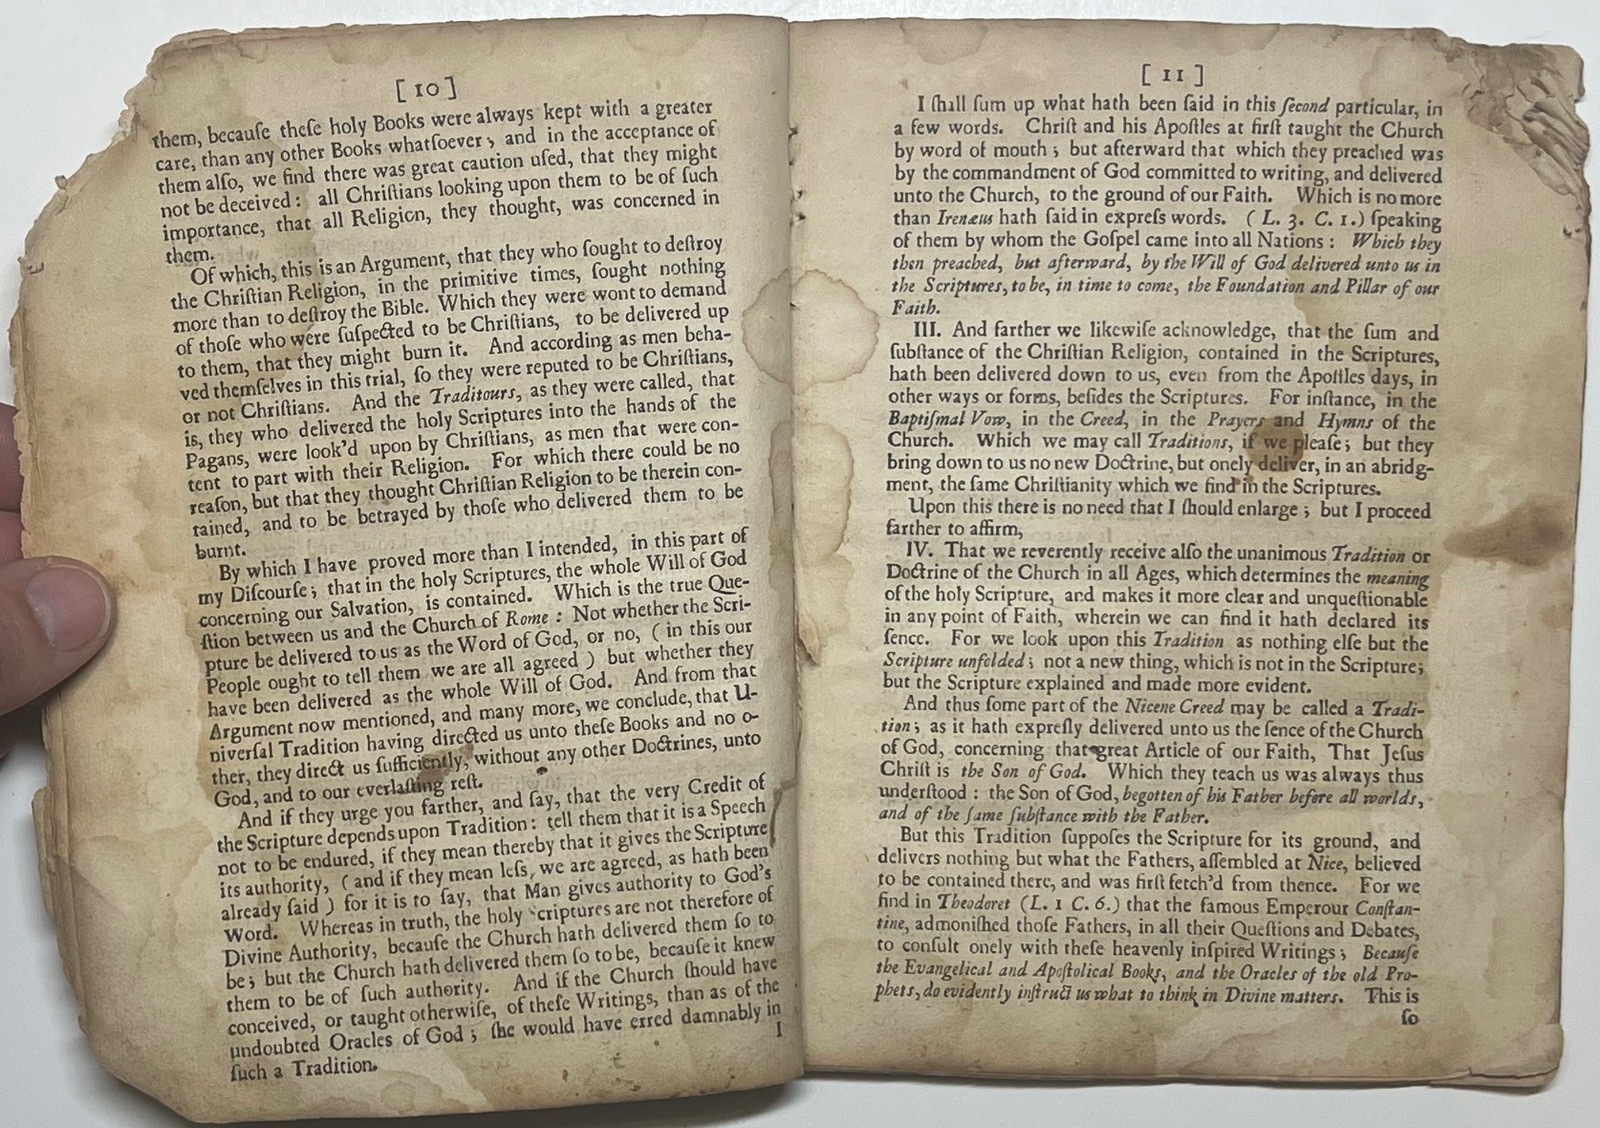 [ 10 ]
them, becauſe theſe holy Books were always kept with a greater
care, than any other Books whatſoever; and in the acceptance of
them alſo, we find there was great caution uſed, that they might
not be deceived: all Chriſtians looking upon them to be of ſuch
importance, that all Religion, they thought, was concerned in
them.
Of which, this is an Argument, that they who ſought to deſtroy
the Chriſtian Religion, in the primitive times, ſought nothing
more than to deſtroy the Bible. Which they were wont to demand
of thoſe who were ſuſpected to be Chriſtians, to be delivered up
to them, that they might burn it. And according as men beha-
ved themſelves in this trial, ſo they were reputed to be Chriſtians,
or not Chriſtians. And the Traditours, as they were called, that
is, they who delivered the holy Scriptures into the hands of the
Pagans, were look'd upon by Chriſtians, as men that were con-
tent to part with their Religion. For which there could be no
reaſon, but that they thought Chriſtian Religion to be therein con-
tained, and to be betrayed by thoſe who delivered them to be
burnt.
By which I have proved more than I intended, in this part of
my Diſcourſe; that in the holy Scriptures, the whole Will of God
concerning our Salvation, is contained. Which is the true Que-
ſtion between us and the Church of Rome: Not whether the Scri-
pture be delivered to us as the Word of God, or no, ( in this our
People ought to tell them we are all agreed ) but whether they
have been delivered as the whole Will of God. And from that
Argument now mentioned, and many more, we conclude, that U-
niverſal Tradition having directed us unto theſe Books and no o-
ther, they direct us ſufficiently, without any other Doctrines, unto
God, and to our everlaſting reſt.
And if they urge you farther, and ſay, that the very Credit of
the Scripture depends upon Tradition: tell them that it is a Speech
not to be endured, if they mean thereby that it gives the Scripture
its authority, ( and if they mean leſs, we are agreed, as hath been
already ſaid ) for it is to ſay, that Man gives authority to God's
Word. Whereas in truth, the holy Scriptures are not therefore of
Divine Authority, becauſe the Church hath delivered them ſo to
be; but the Church hath delivered them ſo to be, becauſe it knew
them to be of ſuch authority. And if the Church ſhould have
conceived, or taught otherwiſe, of theſe Writings, than as of the
undoubted Oracles of God; ſhe would have erred damnably in
ſuch a Tradition.
I
[ 11 ]
I ſhall ſum up what hath been ſaid in this ſecond particular, in
a few words. Chriſt and his Apoſtles at firſt taught the Church
by word of mouth; but afterward that which they preached was
by the commandment of God committed to writing, and delivered
unto the Church, to the ground of our Faith. Which is no more
than Irenæus hath ſaid in expreſs words. ( L. 3. C. 1.) ſpeaking
of them by whom the Goſpel came into all Nations: Which they
then preached, but afterward, by the Will of God delivered unto us in
the Scriptures, to be, in time to come, the Foundation and Pillar of our
Faith.
III. And farther we likewiſe acknowledge, that the ſum and
ſubſtance of the Chriſtian Religion, contained in the Scriptures,
hath been delivered down to us, even from the Apoſtles days, in
other ways or forms, beſides the Scriptures. For inſtance, in the
Baptiſmal Vow, in the Creed, in the Prayers and Hymns of the
Church. Which we may call Traditions, if we pleaſe; but they
bring down to us no new Doctrine, but onely deliver, in an abridg-
ment, the ſame Chriſtianity which we find in the Scriptures.
Upon this there is no need that I ſhould enlarge; but I proceed
farther to affirm,
IV. That we reverently receive alſo the unanimous Tradition or
Doctrine of the Church in all Ages, which determines the meaning
of the holy Scripture, and makes it more clear and unqueſtionable
in any point of Faith, wherein we can find it hath declared its
ſence. For we look upon this Tradition as nothing elſe but the
Scripture unfolded; not a new thing, which is not in the Scripture;
but the Scripture explained and made more evident.
And thus ſome part of the Nicene Creed may be called a Tradi-
tion; as it hath expreſly delivered unto us the ſence of the Church
of God, concerning that great Article of our Faith, That Jeſus
Chriſt is the Son of God. Which they teach us was always thus
underſtood: the Son of God, begotten of his Father before all worlds,
and of the ſame ſubſtance with the Father.
But this Tradition ſuppoſes the Scripture for its ground, and
delivers nothing but what the Fathers, aſſembled at Nice, believed
to be contained there, and was firſt fetch'd from thence. For we
find in Theodoret (L. 1 C. 6.) that the famous Emperour Conſtan-
tine, admoniſhed thoſe Fathers, in all their Queſtions and Debates,
to conſult onely with theſe heavenly inſpired Writings; Becauſe
the Evangelical and Apoſtolical Books, and the Oracles of the old Pro-
phets, do evidently inſtruct us what to think in Divine matters. This is
ſo